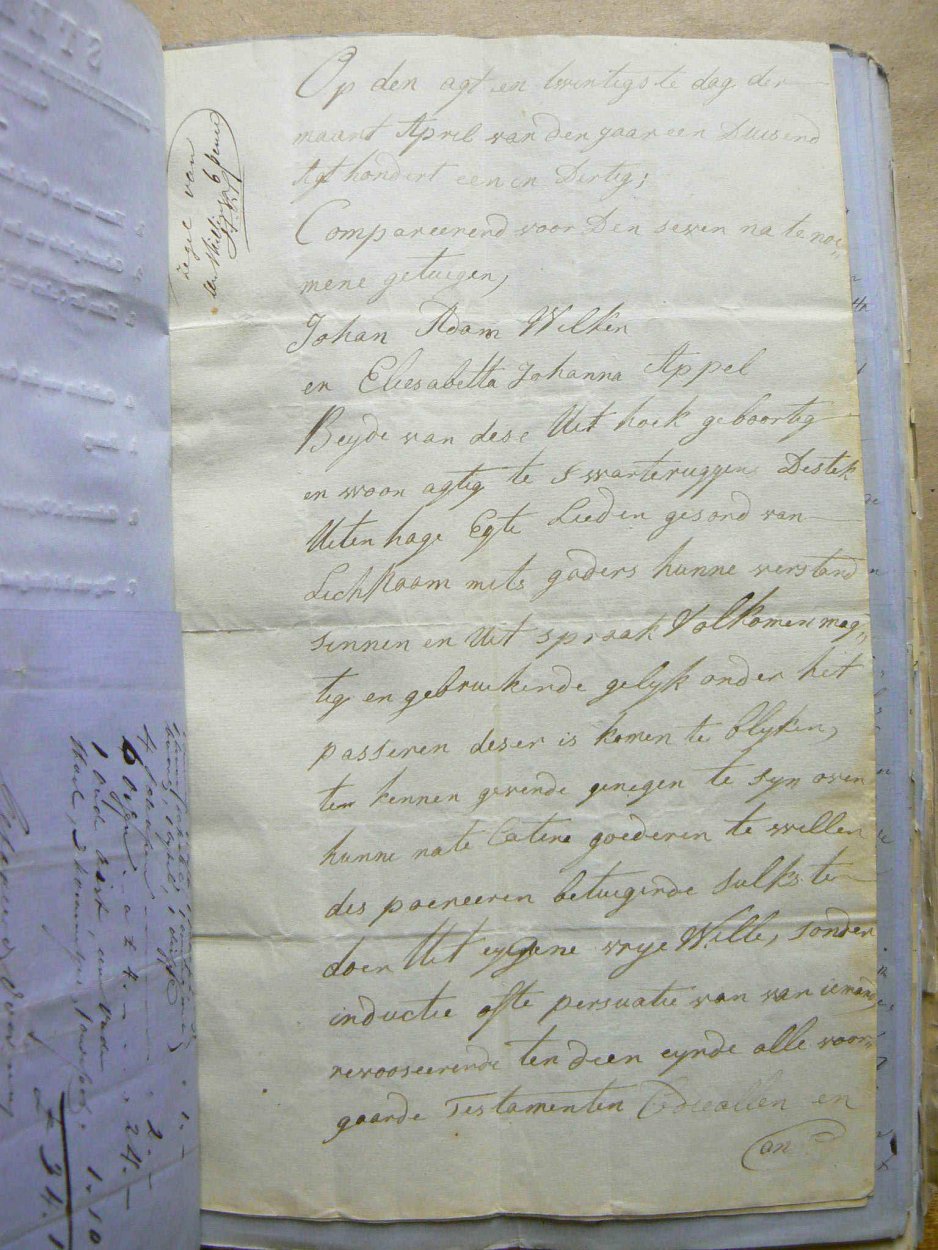 Zegel van
Skillings 6 pence
Op den agt en twintigste dag der
maant April van den yaar een Duisend
Agt hondert een en Dertig;
Compareerend voor Den seven na te noe„
mene getuigen,
Johan Adam Wilken
en Eliesabetta Johanna Appel
Beyde van dese Uit hoek geboortig
en woon agtig te Swarteruggens Destek
Uiten hage Egte Lieden gesond van
Lichaam mits gaders hunne verstand
sinnen en Uit spraak Volkomen mag„
tig en gebruikende gelyk onder hit
passeren deser is komen te blyken,
te kennen gevende genegen te syn oven
hunne nate Latene goederen te willen
dis poeneeren betuigende sulks te
doen Uit eygene vrye Wille, sonder
inductie ofte persuatie van van iemand,
revooseerende ten dien eynde alle voor„
gaande Testamenten Codicellen en
an
4
6 Osse. a 4. - 24. -
1 oude
2
1. 10
£ 34. 1